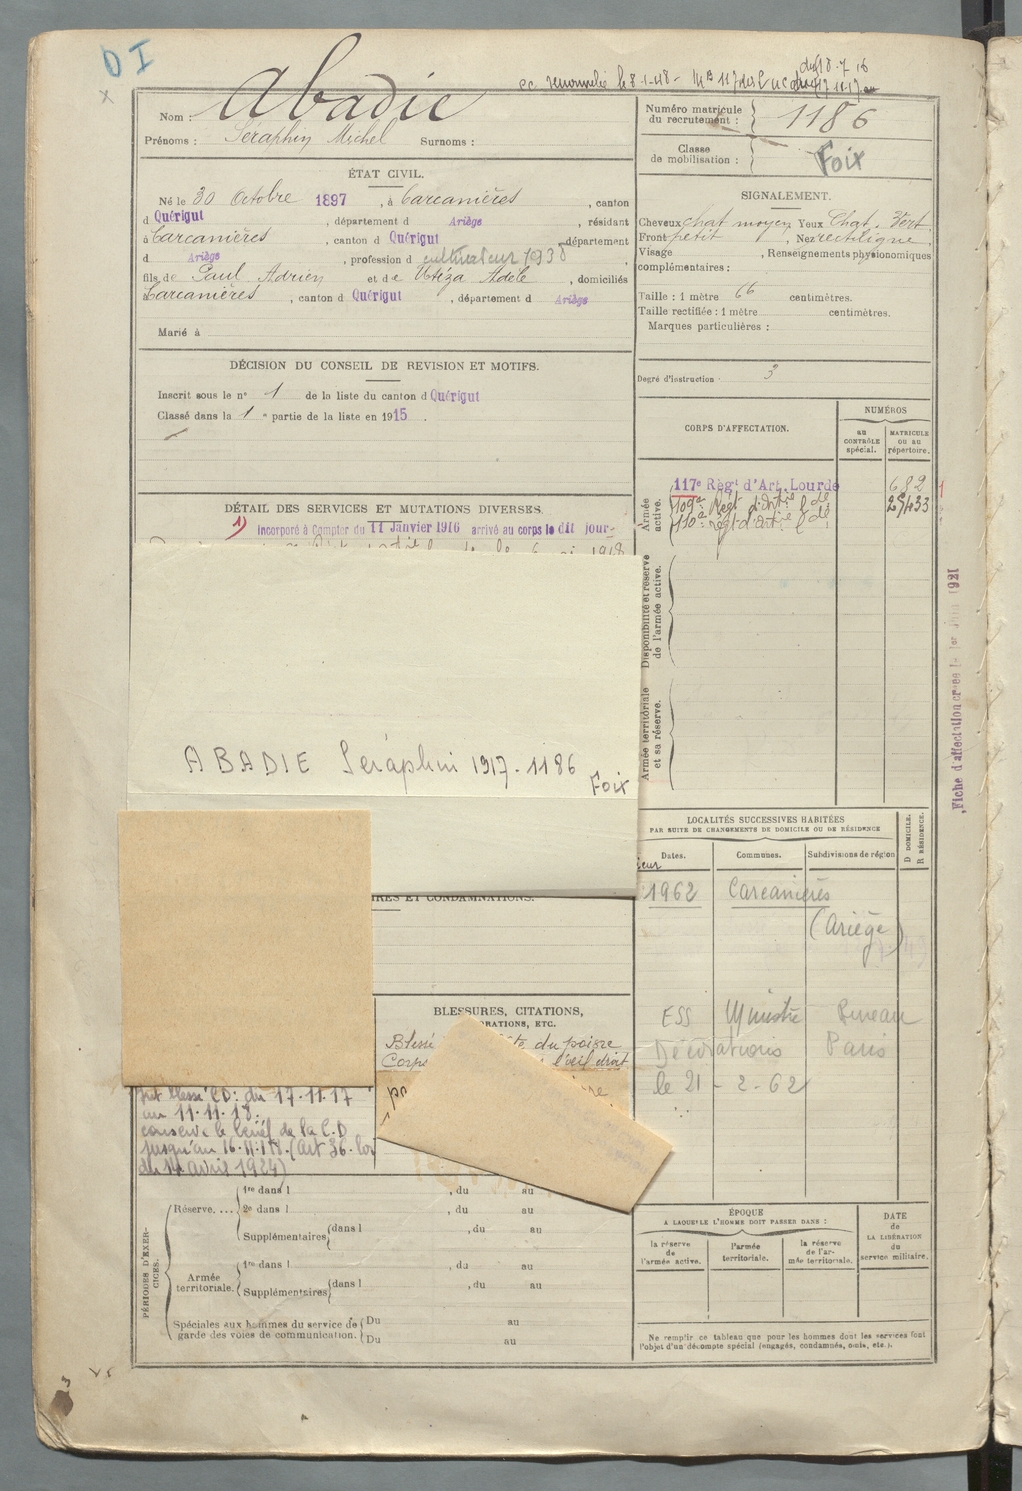 DI
Abadie
Nom :
Prénoms : Séraphin Michel Surnoms :
Numéro matricule du recrutement : 1186
Classe de mobilisation : Foix
ÉTAT CIVIL.
Né le 30 Octobre 1897, à Carcanières, canton
d Quérigut, département d Ariège, résidant
à Carcanières, canton d Quérigut, département
d Ariège, profession d cultivateur 1938
fils de Paul Adrien et de Utéza Adèle, domiciliés
Carcanières, canton d Quérigut, département d Ariège
Marié à
SIGNALEMENT.
Cheveux chat moyen Yeux Chat. Vert
Front petit, Nez rectiligne,
Visage , Renseignements physionomiques
complémentaires :
Taille : 1 mètre 66 centimètres.
Taille rectifiée : 1 mètre centimètres.
Marques particulières :
Degré d'instruction 3
DÉCISION DU CONSEIL DE REVISION ET MOTIFS.
Inscrit sous le n° 1 de la liste du canton d Quérigut
Classé dans la 1e partie de la liste en 1915.
CORPS D'AFFECTATION.
NUMÉROS
au CONTRÔLE spécial.
MATRICULE ou au répertoire.
Armée active.
117e Règt d'Art. Lourde 682
109e Régt d'Artie Lde 25433
110e régt d'art. Lde
Disponibilité et réserve de l'armée active.
Armée territoriale et sa réserve.
DÉTAIL DES SERVICES ET MUTATIONS DIVERSES.
1) incorporé à Compter du 11 Janvier 1916 arrivé au corps le dit jour
1918
Fiche d'affectation créée le 1er 1921
ABADIE Séraphin 1917 - 1186
Foix
LOCALITÉS SUCCESSIVES HABITÉES
PAR SUITE DE CHANGEMENTS DE DOMICILE OU DE RÉSIDENCE
D DOMICILE. R RÉSIDENCE.
Dates. Communes. Subdivisions de région
1962 Carcanières
(Ariège)
ESS Ministre Bureau
Décorations Paris
le 21 - 2 - 62
RES ET CONDAMNATIONS.
BLESSURES, CITATIONS,
ORATIONS, ETC.
Blessé du poigne
Corps l'œil droit
fut blessé CD: du 17.11.17
au 11.11.18.
conserve le bénéf de la C.D
jusqu'au 16.11.18 (art 36. loi
du 14 avril 1924)
PÉRIODES D'EXERCICES.
Réserve.... 1re dans l , du au
2e dans l , du au
Supplémentaires dans l , du au
Armée territoriale. 1re dans l , du au
Supplémentaires dans l , du au
Spéciales aux hommes du service de garde des voies de communication. Du au
Du au
ÉPOQUE
A LAQUELLE L'HOMME DOIT PASSER DANS :
la réserve de l'armée active.
l'armée territoriale.
la réserve de l'armée territoriale.
DATE de LA LIBÉRATION du service militaire.
Ne remplir ce tableau que pour les hommes dont les services font
l'objet d'un décompte spécial (engagés, condamnés, omis, etc.).